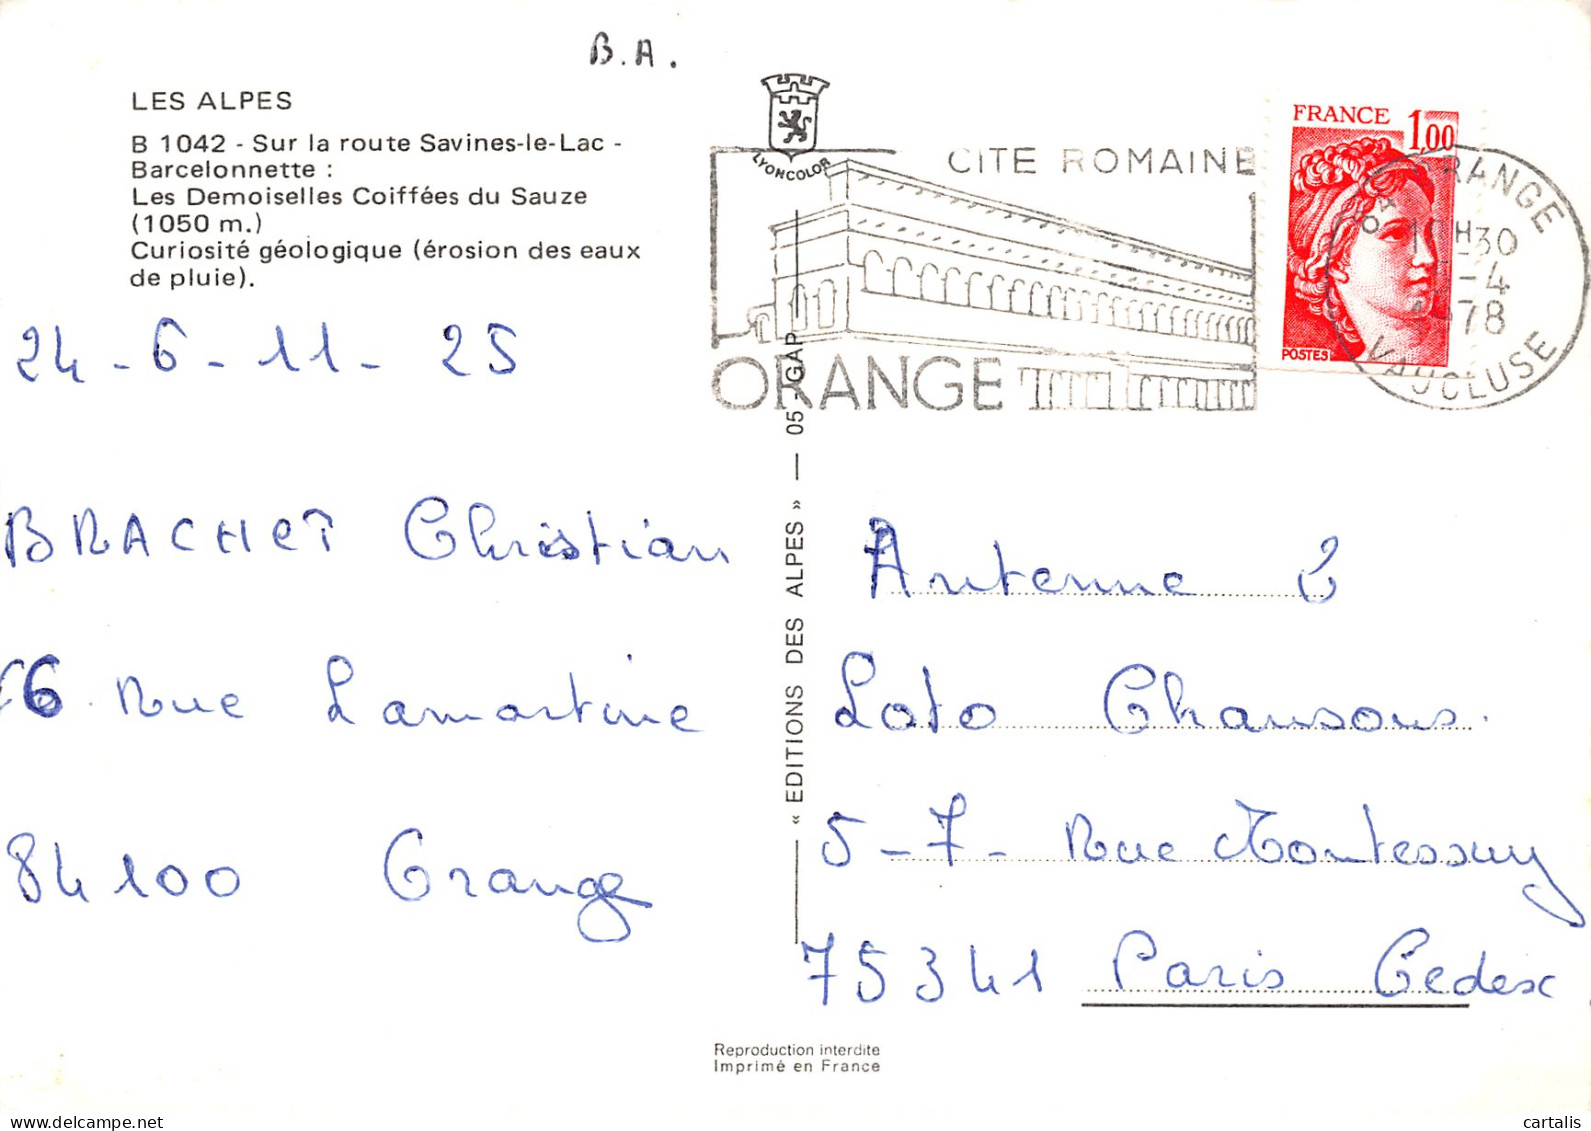 B.A.
LES ALPES
B 1042 - Sur la route Savines-le-Lac -
Barcelonnette :
Les Demoiselles Coiffées du Sauze
(1050 m.)
Curiosité géologique (érosion des eaux
de pluie).
24 - 6 - 11 - 25
BRACHET Christian
66 Rue Lamartine
84100 Orange
LYONCOLOR
CITE ROMAINE
ORANGE
FRANCE 1,00
POSTES
84 ORANGE
H30
-4
1978
VAUCLUSE
« EDITIONS DES ALPES » — 05 - GAP
Antenne 2
Loto Chansons.
5-7- Rue Montessuy
75341 Paris Cedex
Reproduction interdite
Imprimé en France
cartalis
delcampe.net